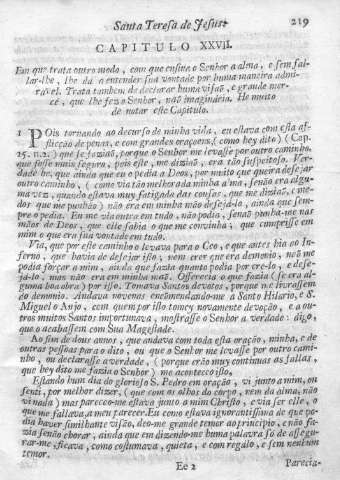 Santa Teresa de Jesus. 219
CAPITULO XXVII.
Em que trata outro modo, com que ensina o Senhor a alma, e sem fal-
lar-lhe, lhe dá a entender sua vontade por huma maneira admi-
ravel. Trata tambem de declarar huma visaõ, e grande mer-
cê, que lhe fez o Senhor, naõ imaginaria. He muito
de notar este Capitulo.
1 POis tornando ao decurso de minha vida, eu estava com esta af-
flicçaõ de penas, e com grandes oraçoens, (como hey dito) (Cap.
25. n.2.) que se faziaõ, porque o Senhor me levasse por outro caminho,
que fosse mais seguro, pois este, me diziaõ, era taõ suspeitoso. Ver-
dade he, que ainda que eu o pedia a Deos, por muito que queira desejar
outro caminho, (como via taõ melhorada minha alma,) senaõ era algu-
ma vez, quando estava muy fatigada das cousas, que me diziaõ, e me-
dos que me punhaõ) naõ era em minha maõ desejalo, ainda que sem-
pre o pedia. Eu me via outra em tudo, naõ podia, senaõ punha-me nas
mãos de Deos, que elle sabia o que me convinha, que cumprisse em
mim o que era sua vontade em tudo.
Via, que por este caminho o levava para o Ceo, e que antes hia ao In-
ferno, que havia de desejar isto, nem crer que era demonio, naõ me
podia forçar a mim, ainda que fazia quanto podia por cre-lo, e dese-
ja-lo, mas naõ era em minha maõ. Offerecia o que fazia (se era al-
guma boa obra) por isso. Tomava Santos devotos, porque me livrassem
do demonio. Andava novenas encómendando-me a Santo Hilario, e S.
Miguel o Anjo, com quem por isto tomey novamente devoçaõ, e a ou-
tros muitos Santos importunava, mostrasse o Senhor a verdade: digo,
que o acabassem com Sua Magestade.
Ao fim de dous annos, que andava com toda esta oraçaõ, minha, e de
outras pessoas para o dito, ou que o Senhor me levasse por outro cami-
nho, ou declarasse a verdade, (porque eraõ muy continuas as fallas,
que hey dito me fazia o Senhor) me aconteceo isto,
Estando hum dia do glorioso S. Pedro em oraçaõ, vi junto a mim, ou
senti, por melhor dizer, (que com os olhos do corpo, nem da alma, naõ
vi nada) mas pareceo-me estava junto a mim Christo, e via ser elle, o
que me fallava, a meu parecer. Eu como estava ignorantissima de que po-
dia haver similhante visaõ, deo-me grande temor ao principio, e naõ fa-
zia senaõ chorar, ainda que em dizendo-me huma palavra só de assegu-
rar-me, ficava, como costumava, quieta, e com regalo, e sem nenhum
temor.
Ee 2 Parecia-